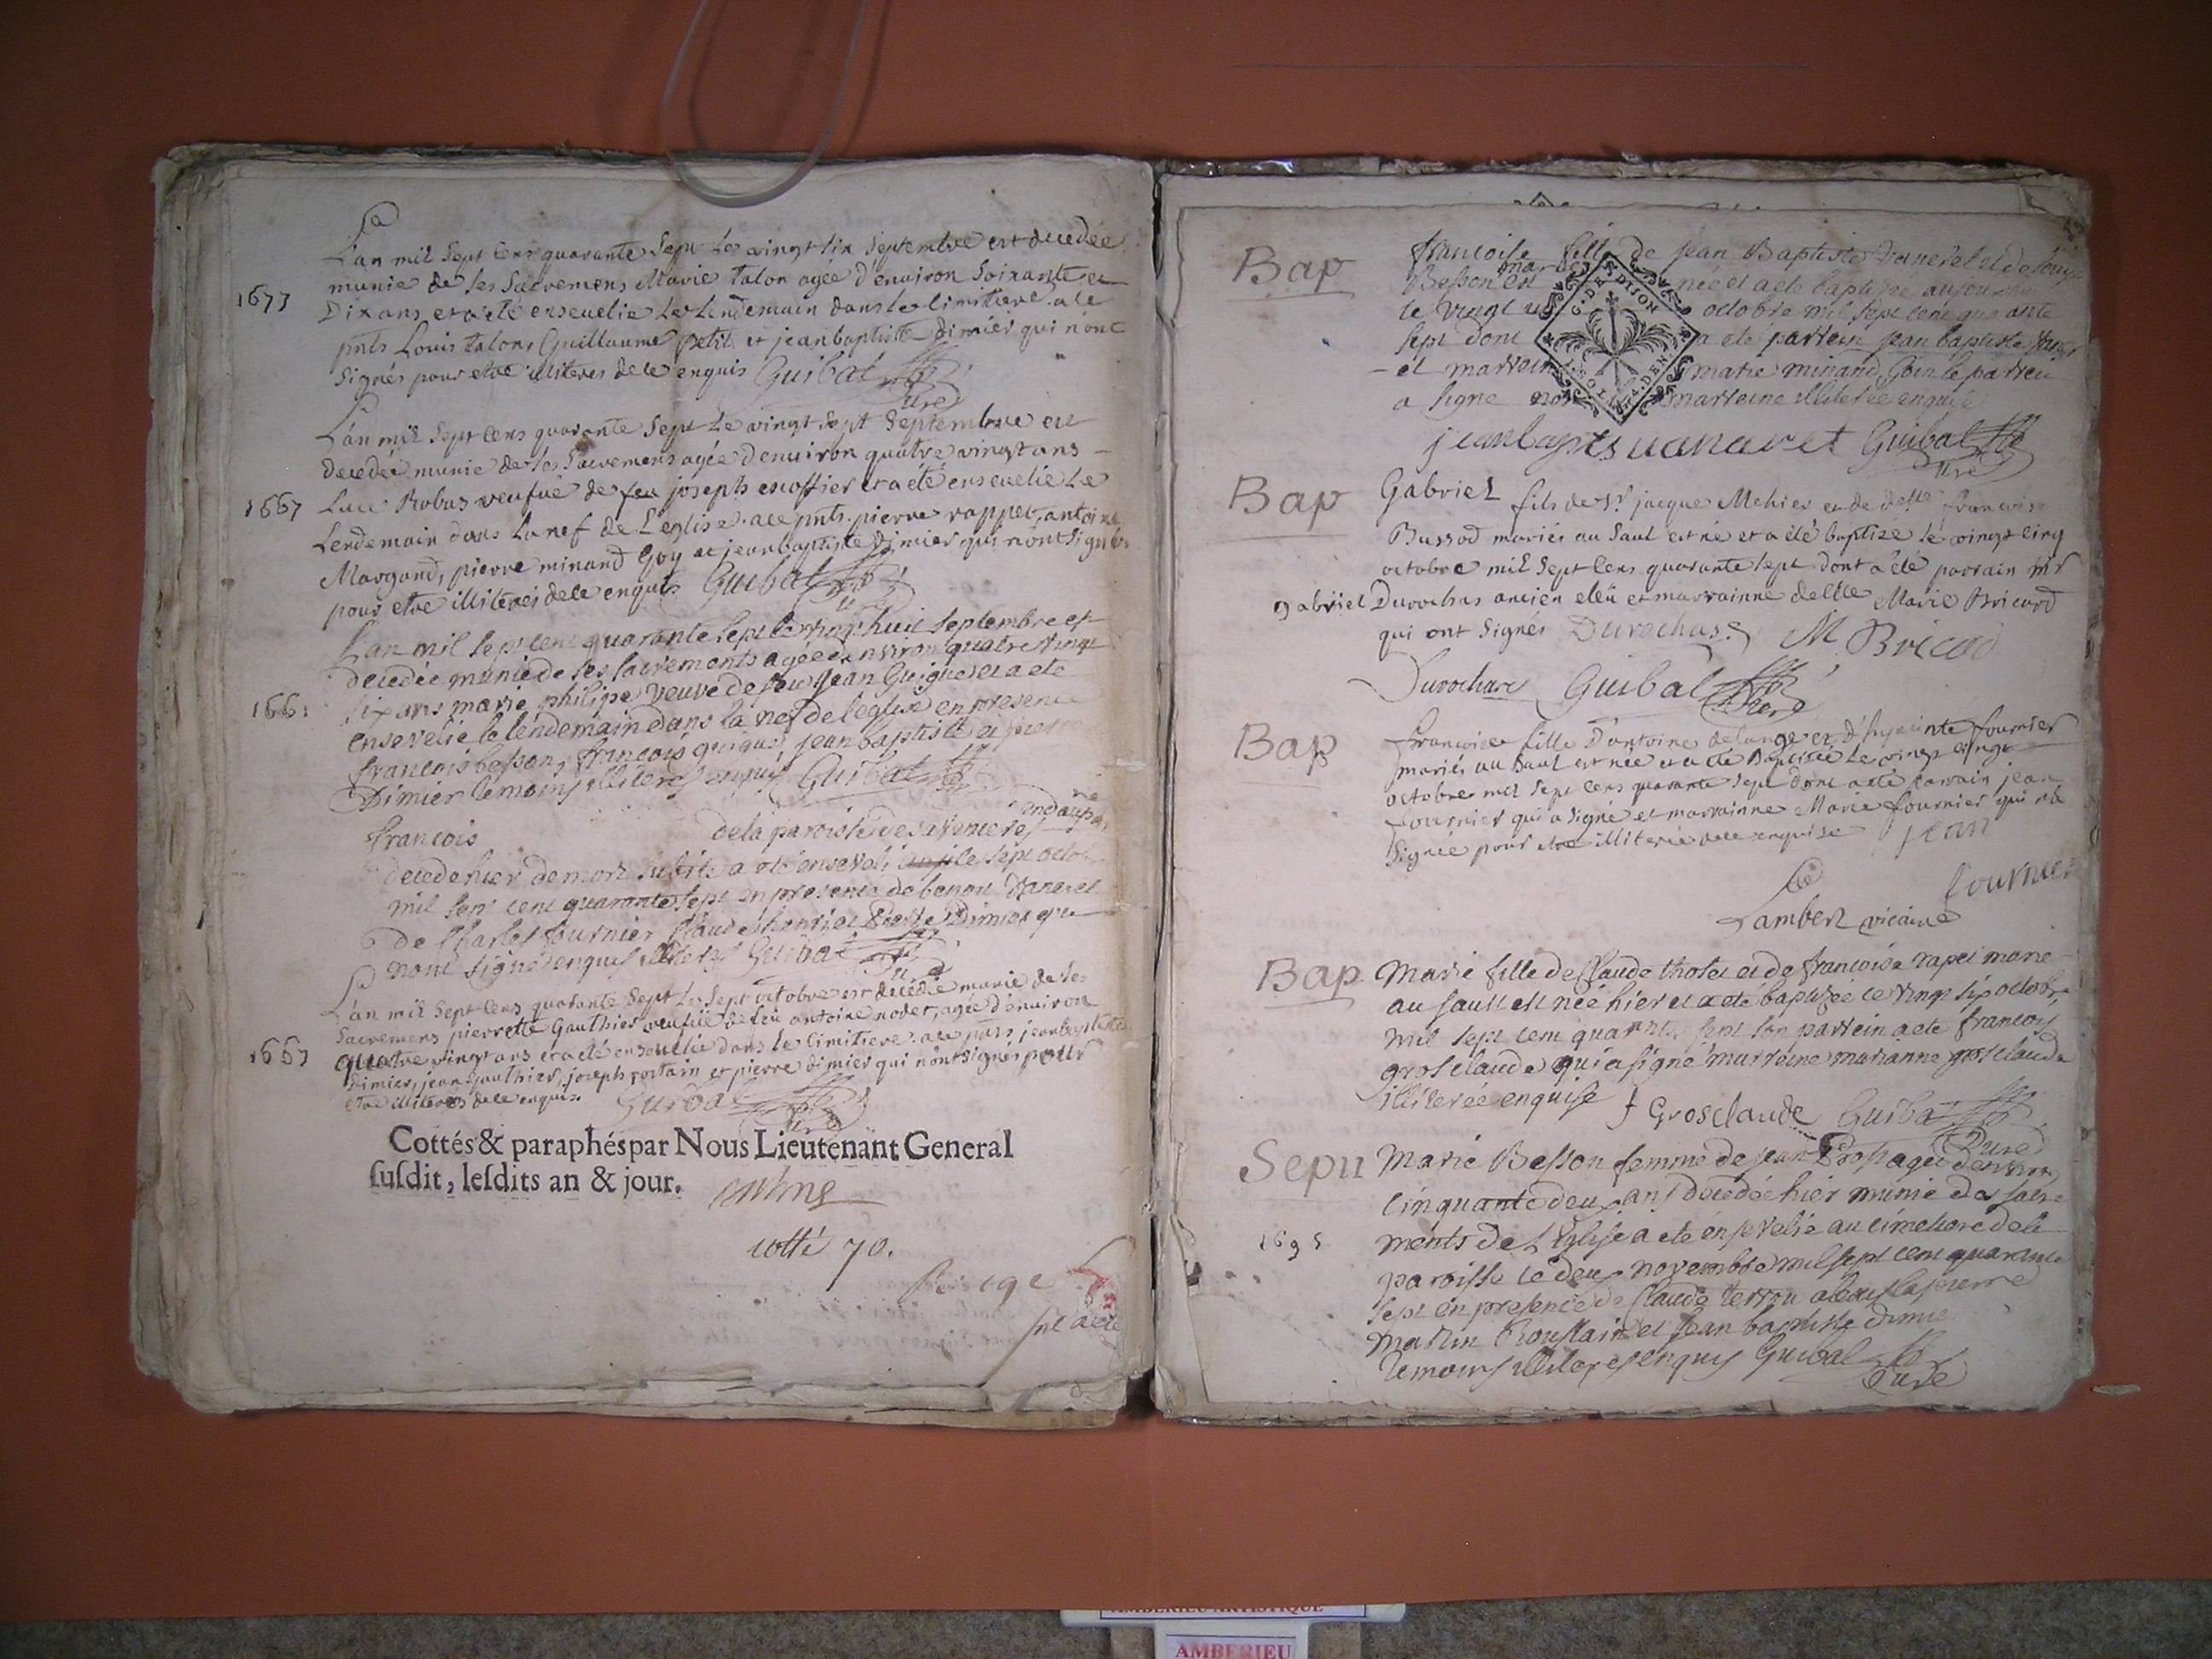 L'an mil Sept Cens quarante Sept Le vingt six Septembre est decedée
munie de ses Sacremens Marie talon agée d'environ Soixante et
1677
Dix ans, et a été ensevelie Le Lendemain dans Le cimitiere. a ce
pnts Louis talon, Guillaume petit et jean baptiste dimier qui n'ont
Signés pour etre illiterés de ce enquis Guibal
Curé
L'an mil Sept Cens quarante Sept Le vingt Sept Septembre est
decedée munie de ses Sacremens agée d'environ quatre vingt ans
1667
Luce Robus veufue de feu joseph escoffier et a été ensevelie Le
Lendemain dans La nef de L'eglise. a ce pnts. pierre rappet, antoine
Margand, pierre minand Goy et jean baptiste dimier qui n'ont Signés
pour etre illiterés de ce enquis Guibal
L'an mil sept cent quarante sept le vingt huit septembre est
decedée munie de ses sacrements agée denviron quatre vingt
166
six ans marie philipe veuve de feu jean Guigue et a ete
ensevelie le lendemain dans la nef de leglise en presence
francois besson, francois guigue, jean baptiste et pierre
Dimier temoins illiteres enquis Guibal
francois de la paroisse de
decede hier de mort subite a été enseveli le sept octobre
mil sept cent quarante sept en presence de benoit vanerel
de Charles fournier Claude henri et pierre Dimier qui
n'ont signé enquis illiteres Guibal
L'an mil Sept Cens quarante Sept Le Sept octobre est decedée munie de ses
Sacremens pierrette Gauthier veufue de feu antoine nodet, agée d'environ
1667
quatre vingt ans et a été ensevelie dans le Cimitiere. a ce pnts jean baptiste
dimier, jean Gauthier, joseph fortain et pierre dimier qui n'ont Signés pour
etre illiterés de ce enquis Guibal
Curé
Cottés & paraphés par Nous Lieutenant General
ſuſdit, leſdits an & jour.
cotté 70.
Bap
francoise fille de jean Baptiste vanerel et de louise
Besson mariés est née et a ete baptizee aujourdhui
le vingt octobre mil sept cent quarante
sept dont a été parrein jean baptiste
et marreine marie minand Goin le parrein
a signe non marreine illiterée enquise
G. DE DIJON
jean baptis vanaret Guibal
Curé
Bap
Gabriel fils de Sr jacque Mehier et de delle francoise
Bussod mariés au Saul est né et a été baptizé le vingt cinq
octobre mil Sept Cens quarante Sept dont a été parrain mr
gabriel Durochas ancien elëu et marrainne delle Marie Bricard
qui ont Signés Durochas M. Bricad
Durochas Guibal
Curé
Bap
francoise fille d'antoine delange et d'hyacinte fournier
mariés au Saul est née et a été Baptisée Le vingt cinq
octobre mil Sept Cens quarante Sept dont a été parrain jean
fournier qui a Signé et marrainne Marie fournier qui n'a
Signée pour etre illiterée de ce enquise jean
fournier
Lambert vicaire
Bap
Marie fille de Claude thotet et de francoise rapet marie
au sault est née hier et a eté baptizée le vingt six octobre
mil sept cent quarante sept son parrein a ete francois
grosclaude qui a signé marreine marianne grosclaude
illiterée enquise f Grosclaude Guibal
Curé
Sepu
Marie Besson femme de jean agée denviron
cinquante deux ans decedée hier munie des sacre
1695
ments de L'Eglise a ete ensevelie au cimetiere de la
paroisse le deux novembre mil sept cent quarante
sept en presence de Claude terrou
martin Roustain et jean baptiste dimie
temoins illiteres enquis Guibal
Curé
AMBERIEU ARTISTIQUE
AMBERIEU